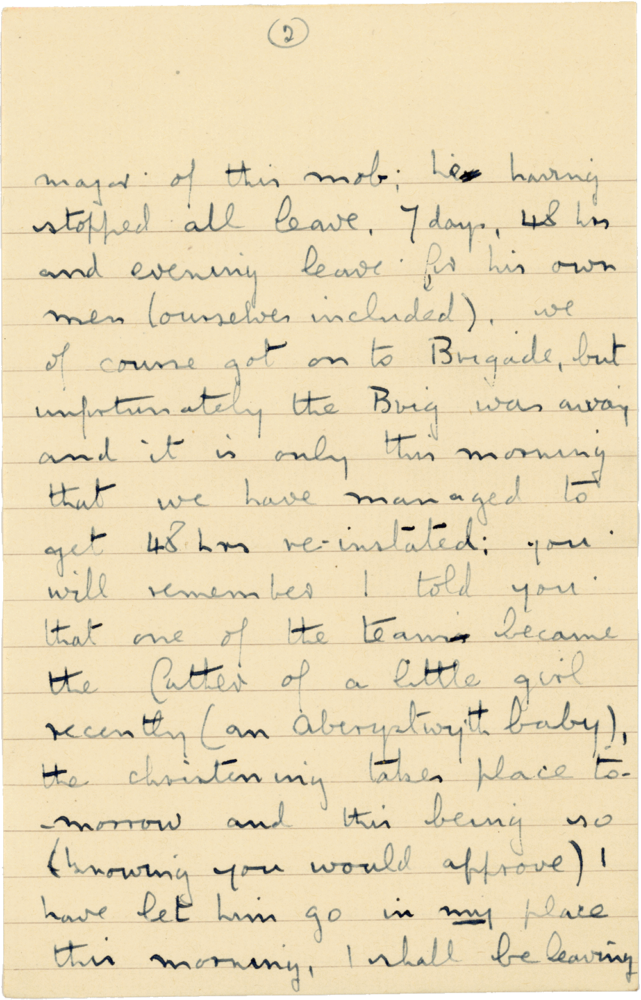 2
major of this mob; he having
stopped all leave, 7 days, 48 hrs
and evening leave for his own
men (ourselves included). we
of course got on to Brigade, but
unfortunately the Brig was away
and it is only this morning
that we have managed to
get 48 hrs re-instated; you
will remember I told you
that one of the team became
the father of a little girl
recently (an Aberystwyth baby),
the christenning takes place to-
-morrow and this being so
(knowing you would approve) I
have let him go in my place
this morning, I shall be leaving